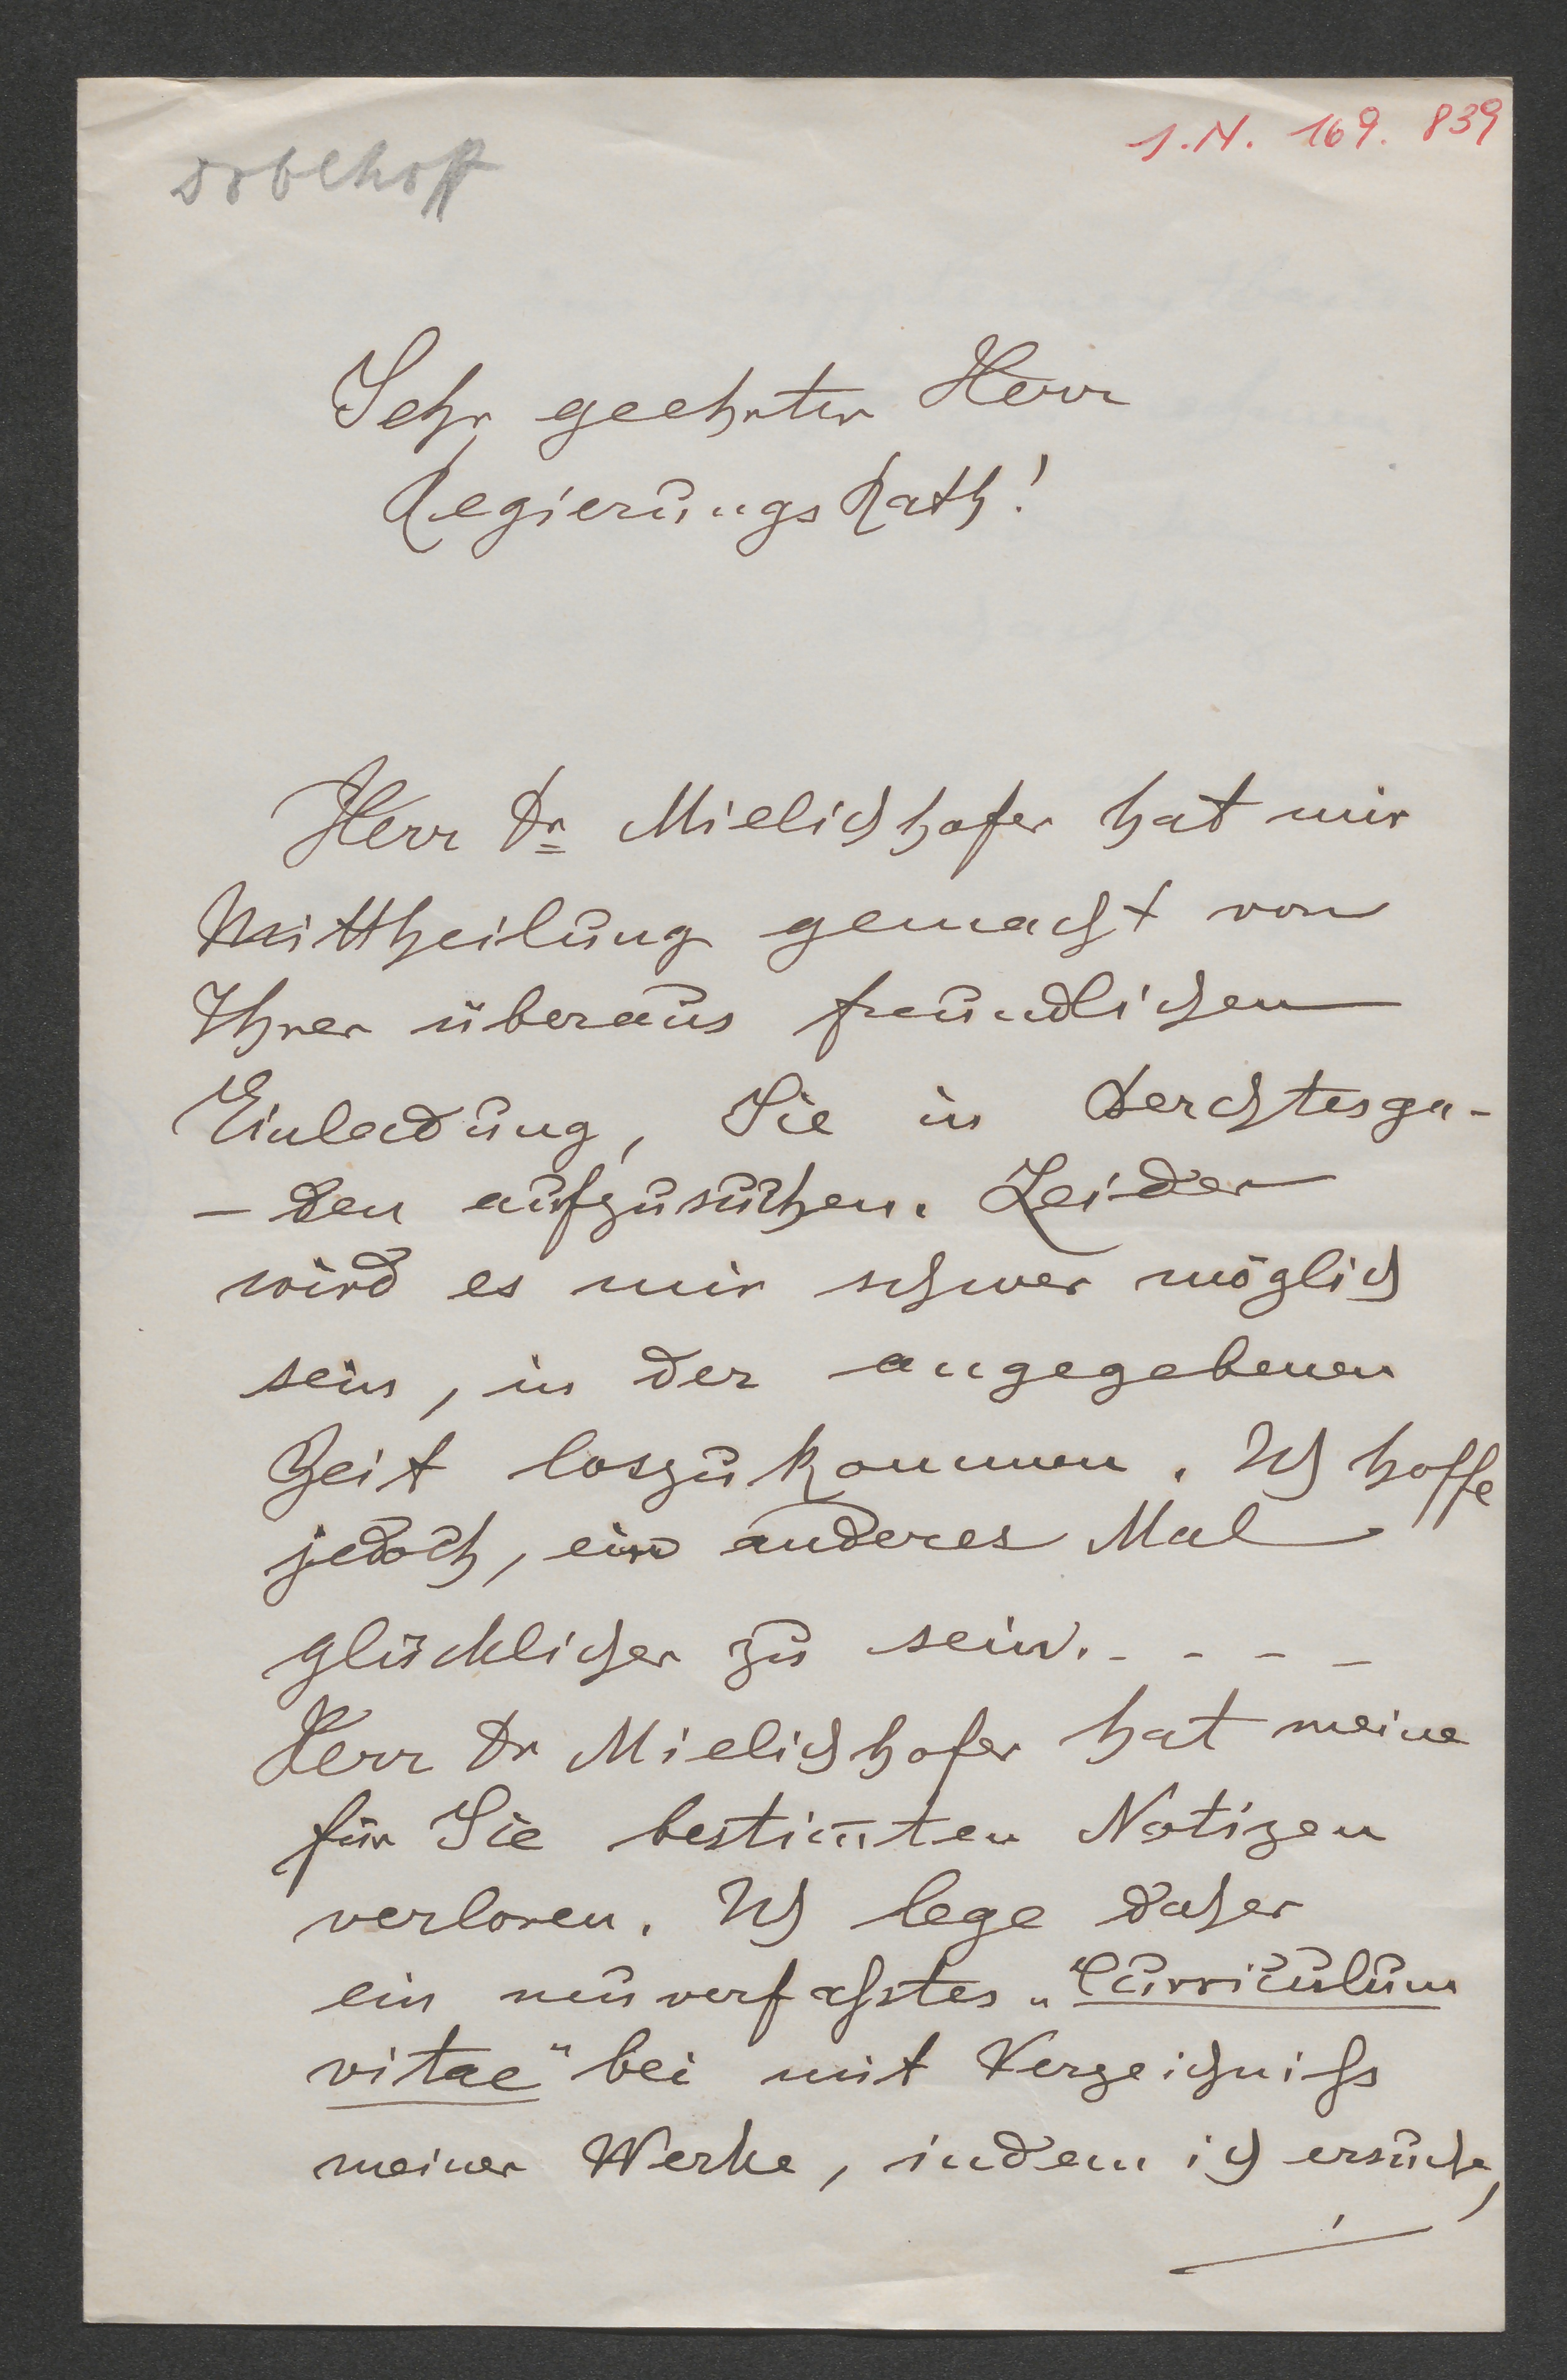 Doblhoff
I.N. 169.839
Sehr geehrter Herr
Regierungs Rath!
Herr Dr Mielichhofer hat mir
Mittheilung gemacht von
Ihrer überaus freundlichen
Einladung, Sie in Berchtesga-
-den aufzusuchen. Leider
wird es mir schwer möglich
sein, in der angegebenen
Zeit loszukommen. Ich hoffe
jedoch, ein anderes Mal
glücklicher zu sein. - - - -
Herr Dr Mielichhofer hat meine
für Sie bestim̅ten Notizen
verloren. Ich lege daher
ein neu verfasstes „Curriculum
vitae" bei mit Verzeichniss
meiner Werke, indem ich ersuche,